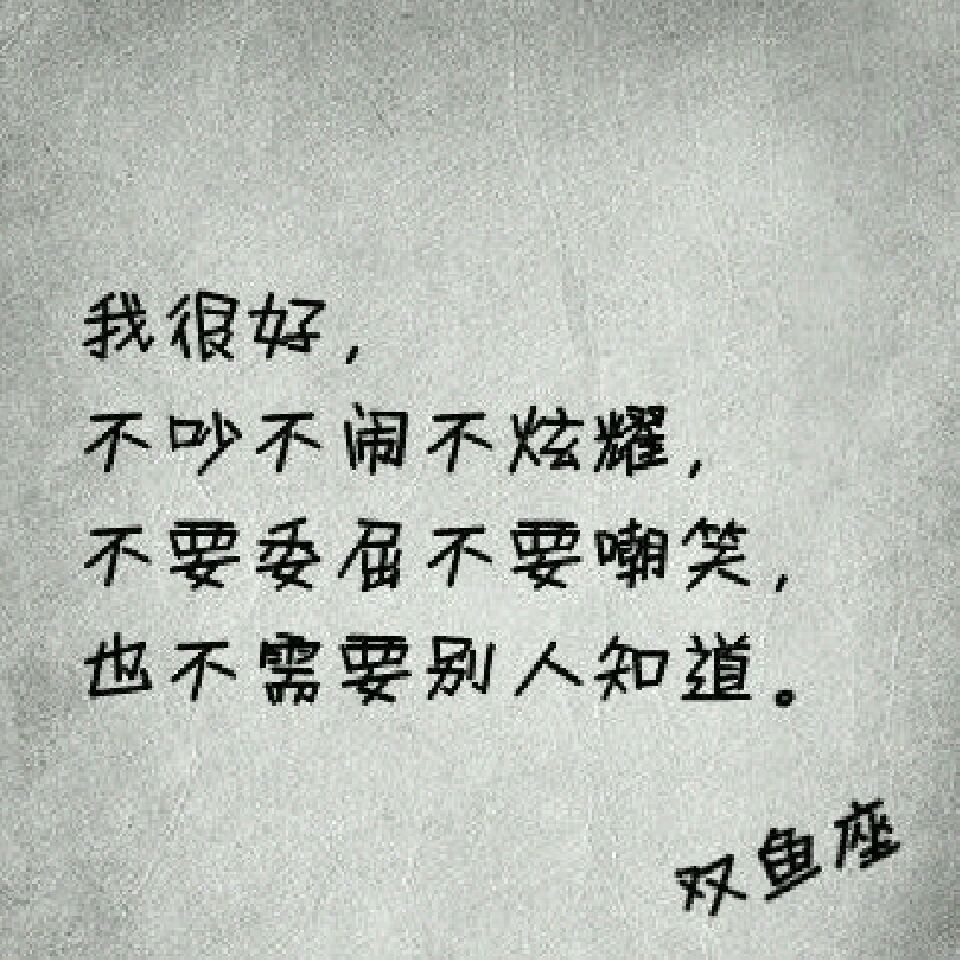 我很好,
不吵不闹不炫耀,
不要委屈不要嘲笑,
也不需要别人知道。
双鱼座